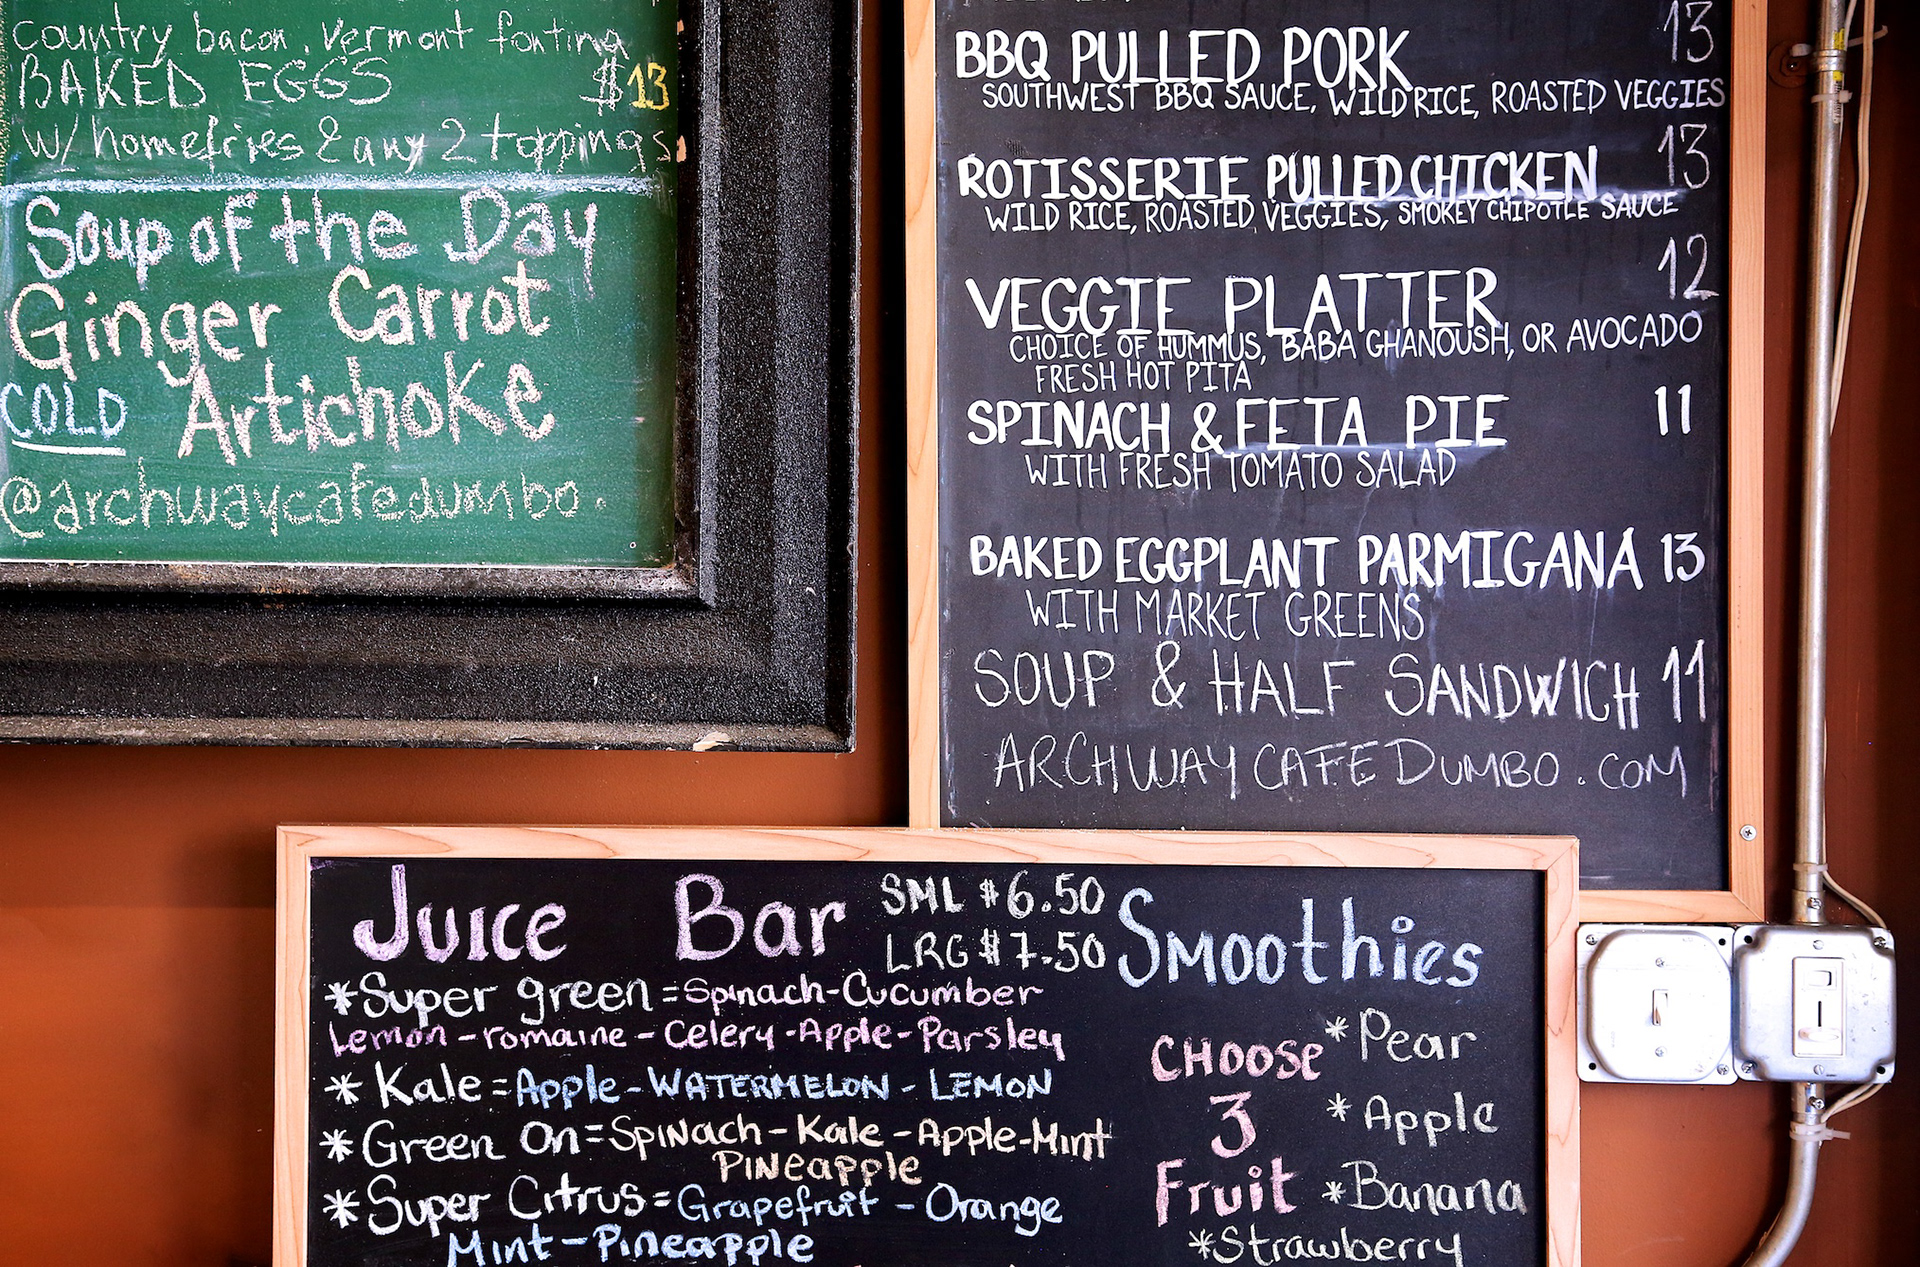 country bacon, vermont fontina
BAKED EGGS $13
w/ homefries & any 2 toppings
Soup of the Day
Ginger Carrot
COLD Artichoke
@archwaycafedumbo.
13
BBQ PULLED PORK
SOUTHWEST BBQ SAUCE, WILD RICE, ROASTED VEGGIES
13
ROTISSERIE PULLED CHICKEN
WILD RICE, ROASTED VEGGIES, SMOKEY CHIPOTLE SAUCE
12
VEGGIE PLATTER
CHOICE OF HUMMUS, BABA GHANOUSH, OR AVOCADO
FRESH HOT PITA
SPINACH & FETA PIE 11
WITH FRESH TOMATO SALAD
BAKED EGGPLANT PARMIGANA 13
WITH MARKET GREENS
SOUP & HALF SANDWICH 11
ARCHWAY CAFE DUMBO.COM
Juice Bar
SML $6.50
LRG $7.50
*Super green = Spinach-Cucumber
Lemon - romaine - Celery - Apple - Parsley
* Kale = Apple - WATERMELON - LEMON
* Green On = Spinach - Kale - Apple - Mint
Pineapple
* Super Citrus = Grapefruit - Orange
Mint - Pineapple
Smoothies
CHOOSE
3
Fruit
* Pear
* Apple
* Banana
* Strawberry